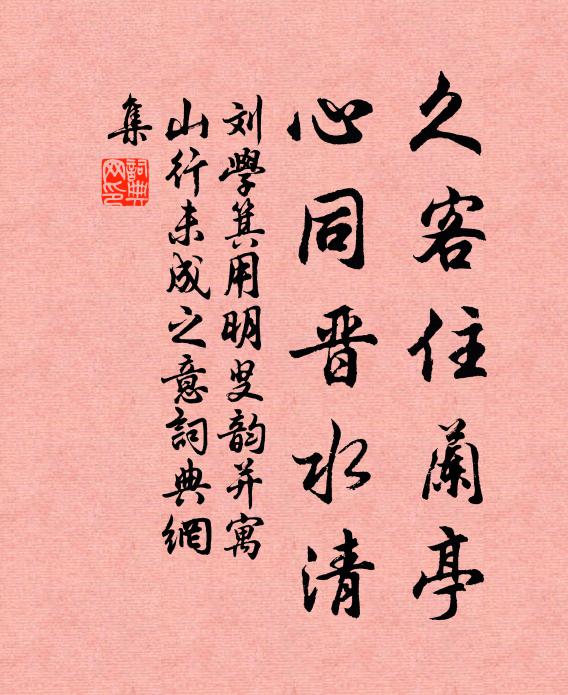 久客住蘭亭
心同晋水清
刘學箕用明叟韵并寓
山行未成之意詞典網
集
詞典
网印